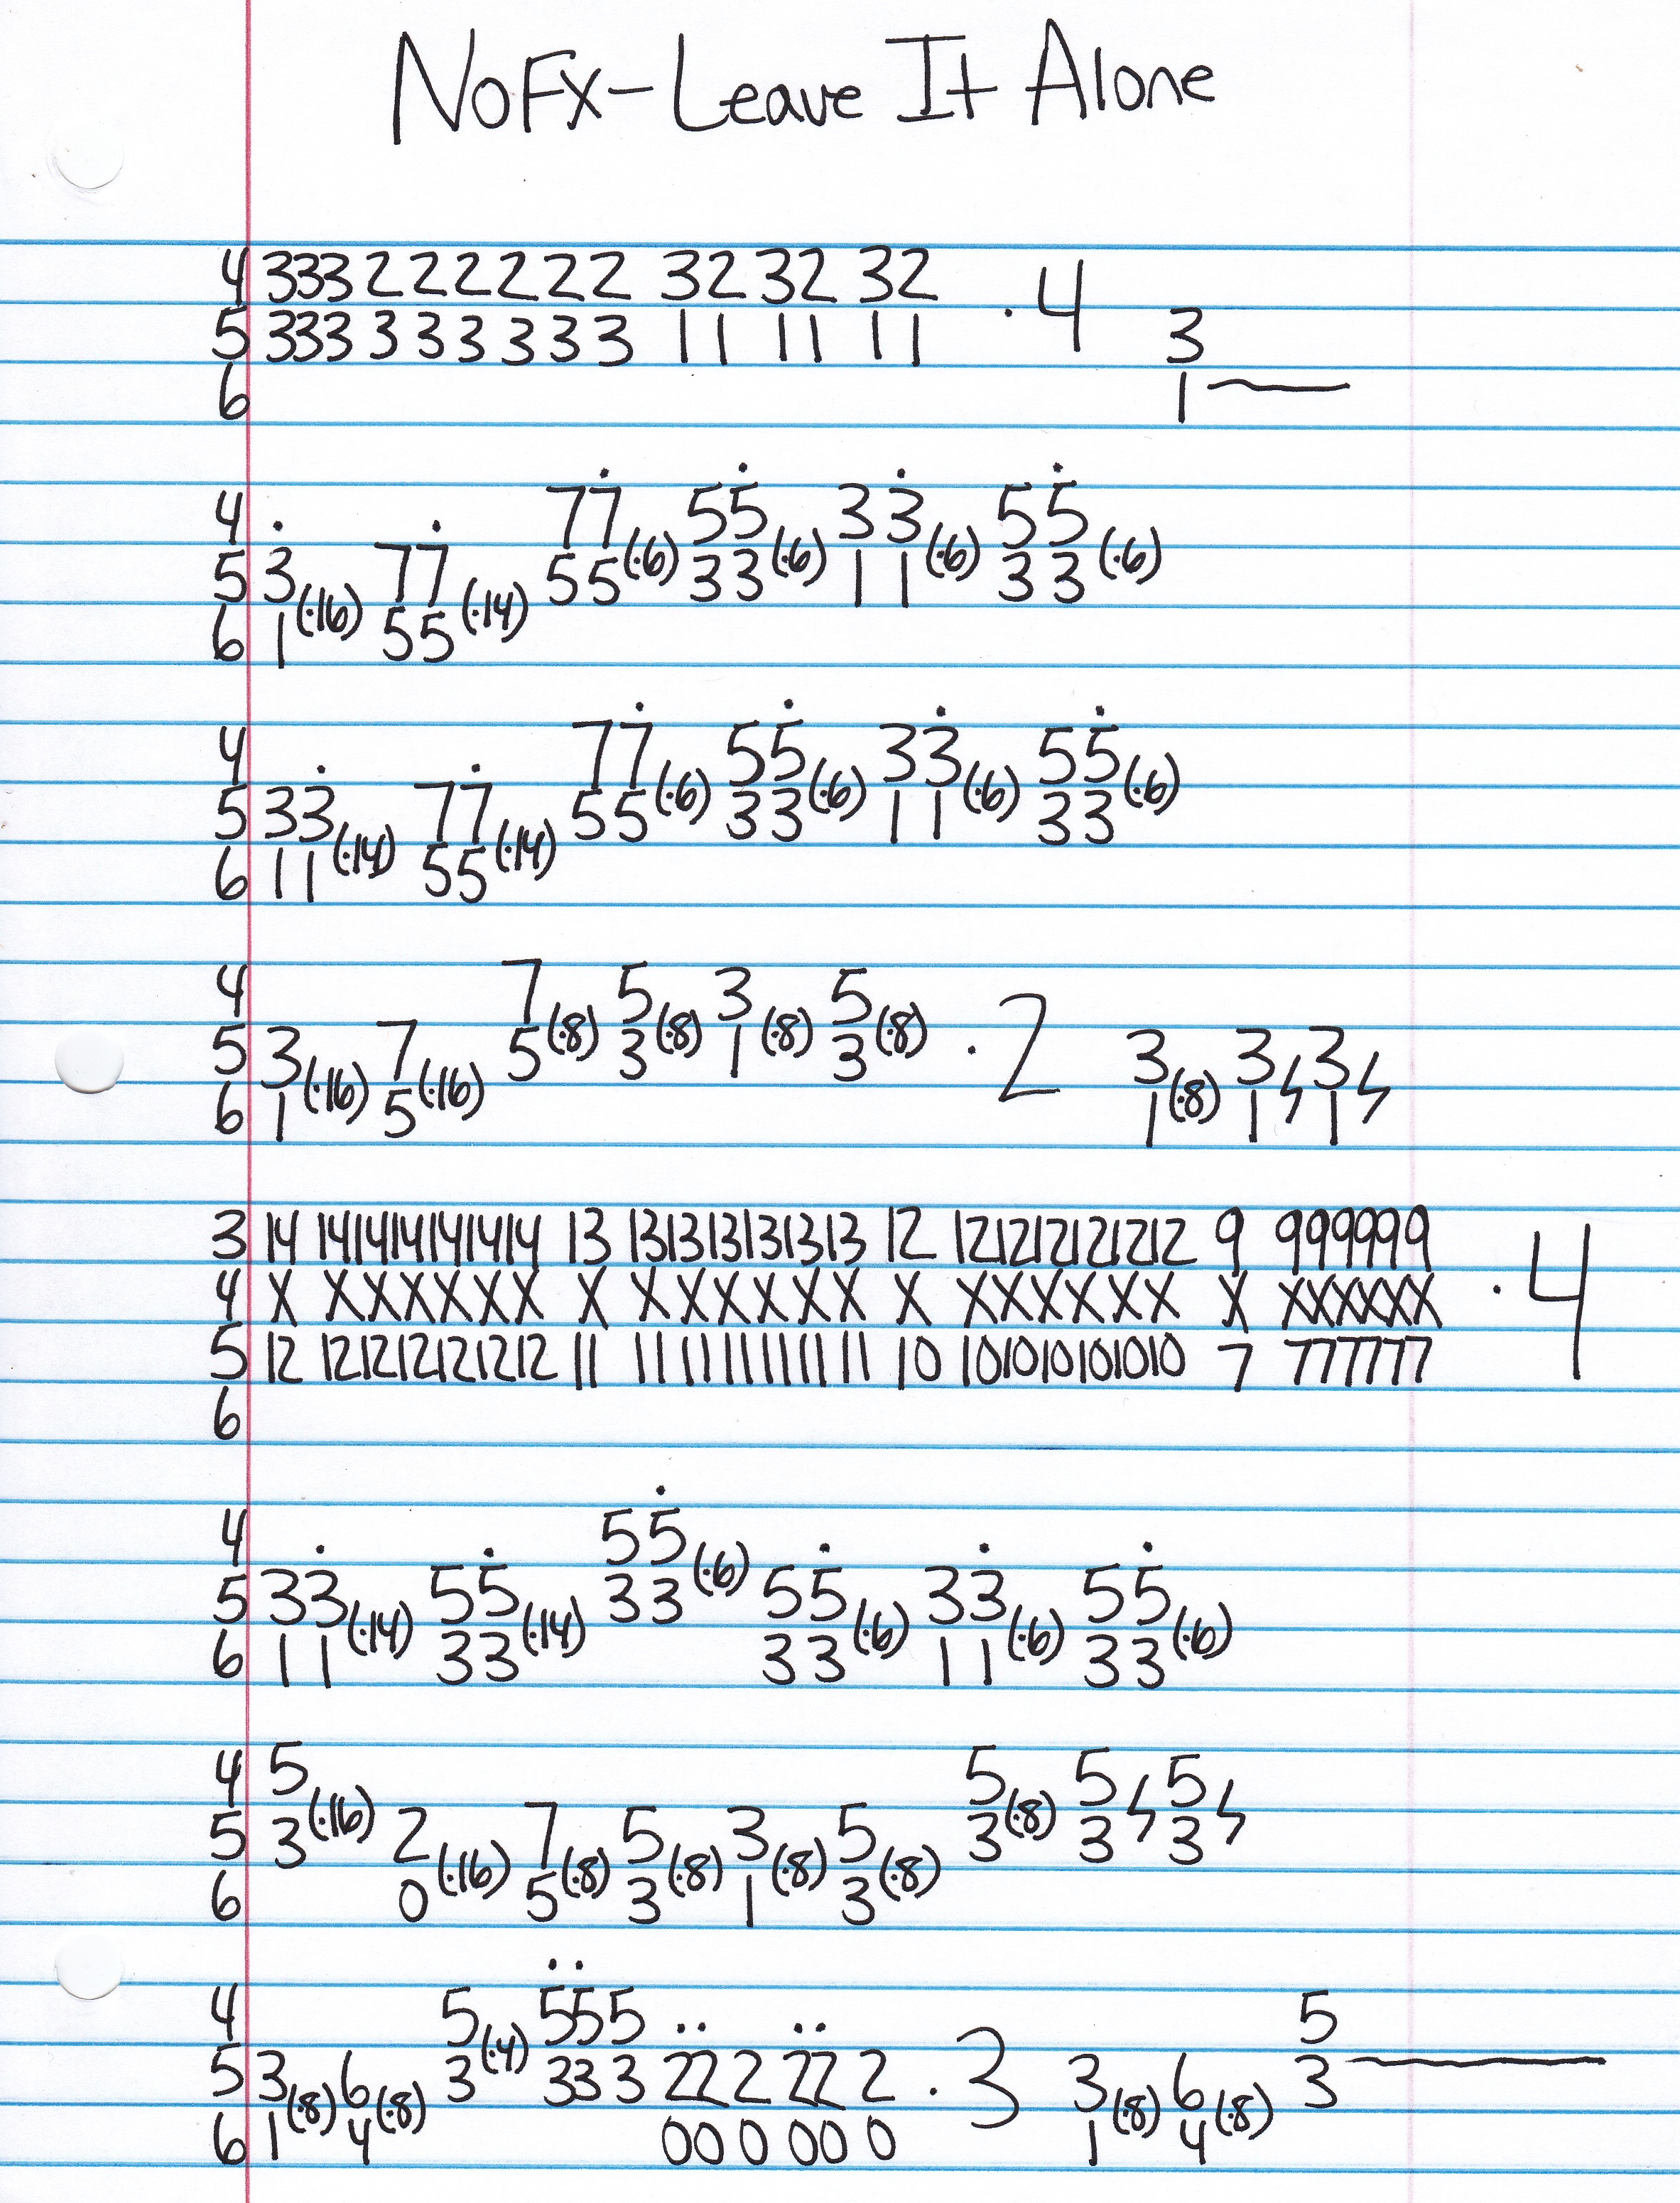 NoFX - Leave It Alone
4 333 2 2 2 2 2 2 32 32 32 · 4
5 333 3 3 3 3 3 3 11 11 11 3
6 1
4 · · 77̇ 55̇ 33̇ 55̇
5 3 (·16) 77 (·14) 55 (·6) 33 (·6) 11 (·6) 33 (·6)
6 1 55
4 77̇ 55̇ 33̇ 55̇
5 33̇ (·14) 77̇ (·14) 55 (·6) 33 (·6) 11 (·6) 33 (·6)
6 11 55
4 7 5 3 5
5 3 (·16) 7 (·16) 5 (·8) 3 (·8) 1 (·8) 3 (·8) · 2 3 (·8) 3 ϟ 3 ϟ
6 1 5 1 1 1
3 14 141414141414 13 131313131313 12 121212121212 9 999999
4 X XXXXXX X XXXXXX X XXXXXX X XXXXXX · 4
5 12 121212121212 11 111111111111 10 101010101010 7 777777
6
4 55̇
5 33̇ (·14) 55̇ (·14) 33 (·6) 55̇ (·6) 33̇ (·6) 55̇ (·6)
6 11 33 33 11 33
4 5 5 5 5
5 3 (·16) 2 (·16) 7 (·8) 5 (·8) 3 (·8) 5 (·8) 3 (·8) 3 ϟ 3 ϟ
6 0 5 3 1 3
4 5 5̇5̇5 ·· ·· 5
5 3 (·8) 6 (·8) 3 (·4) 33 3 22 2 22 2 · 3 3 (·8) 6 (·8) 3
6 1 4 00 0 00 0 1 4